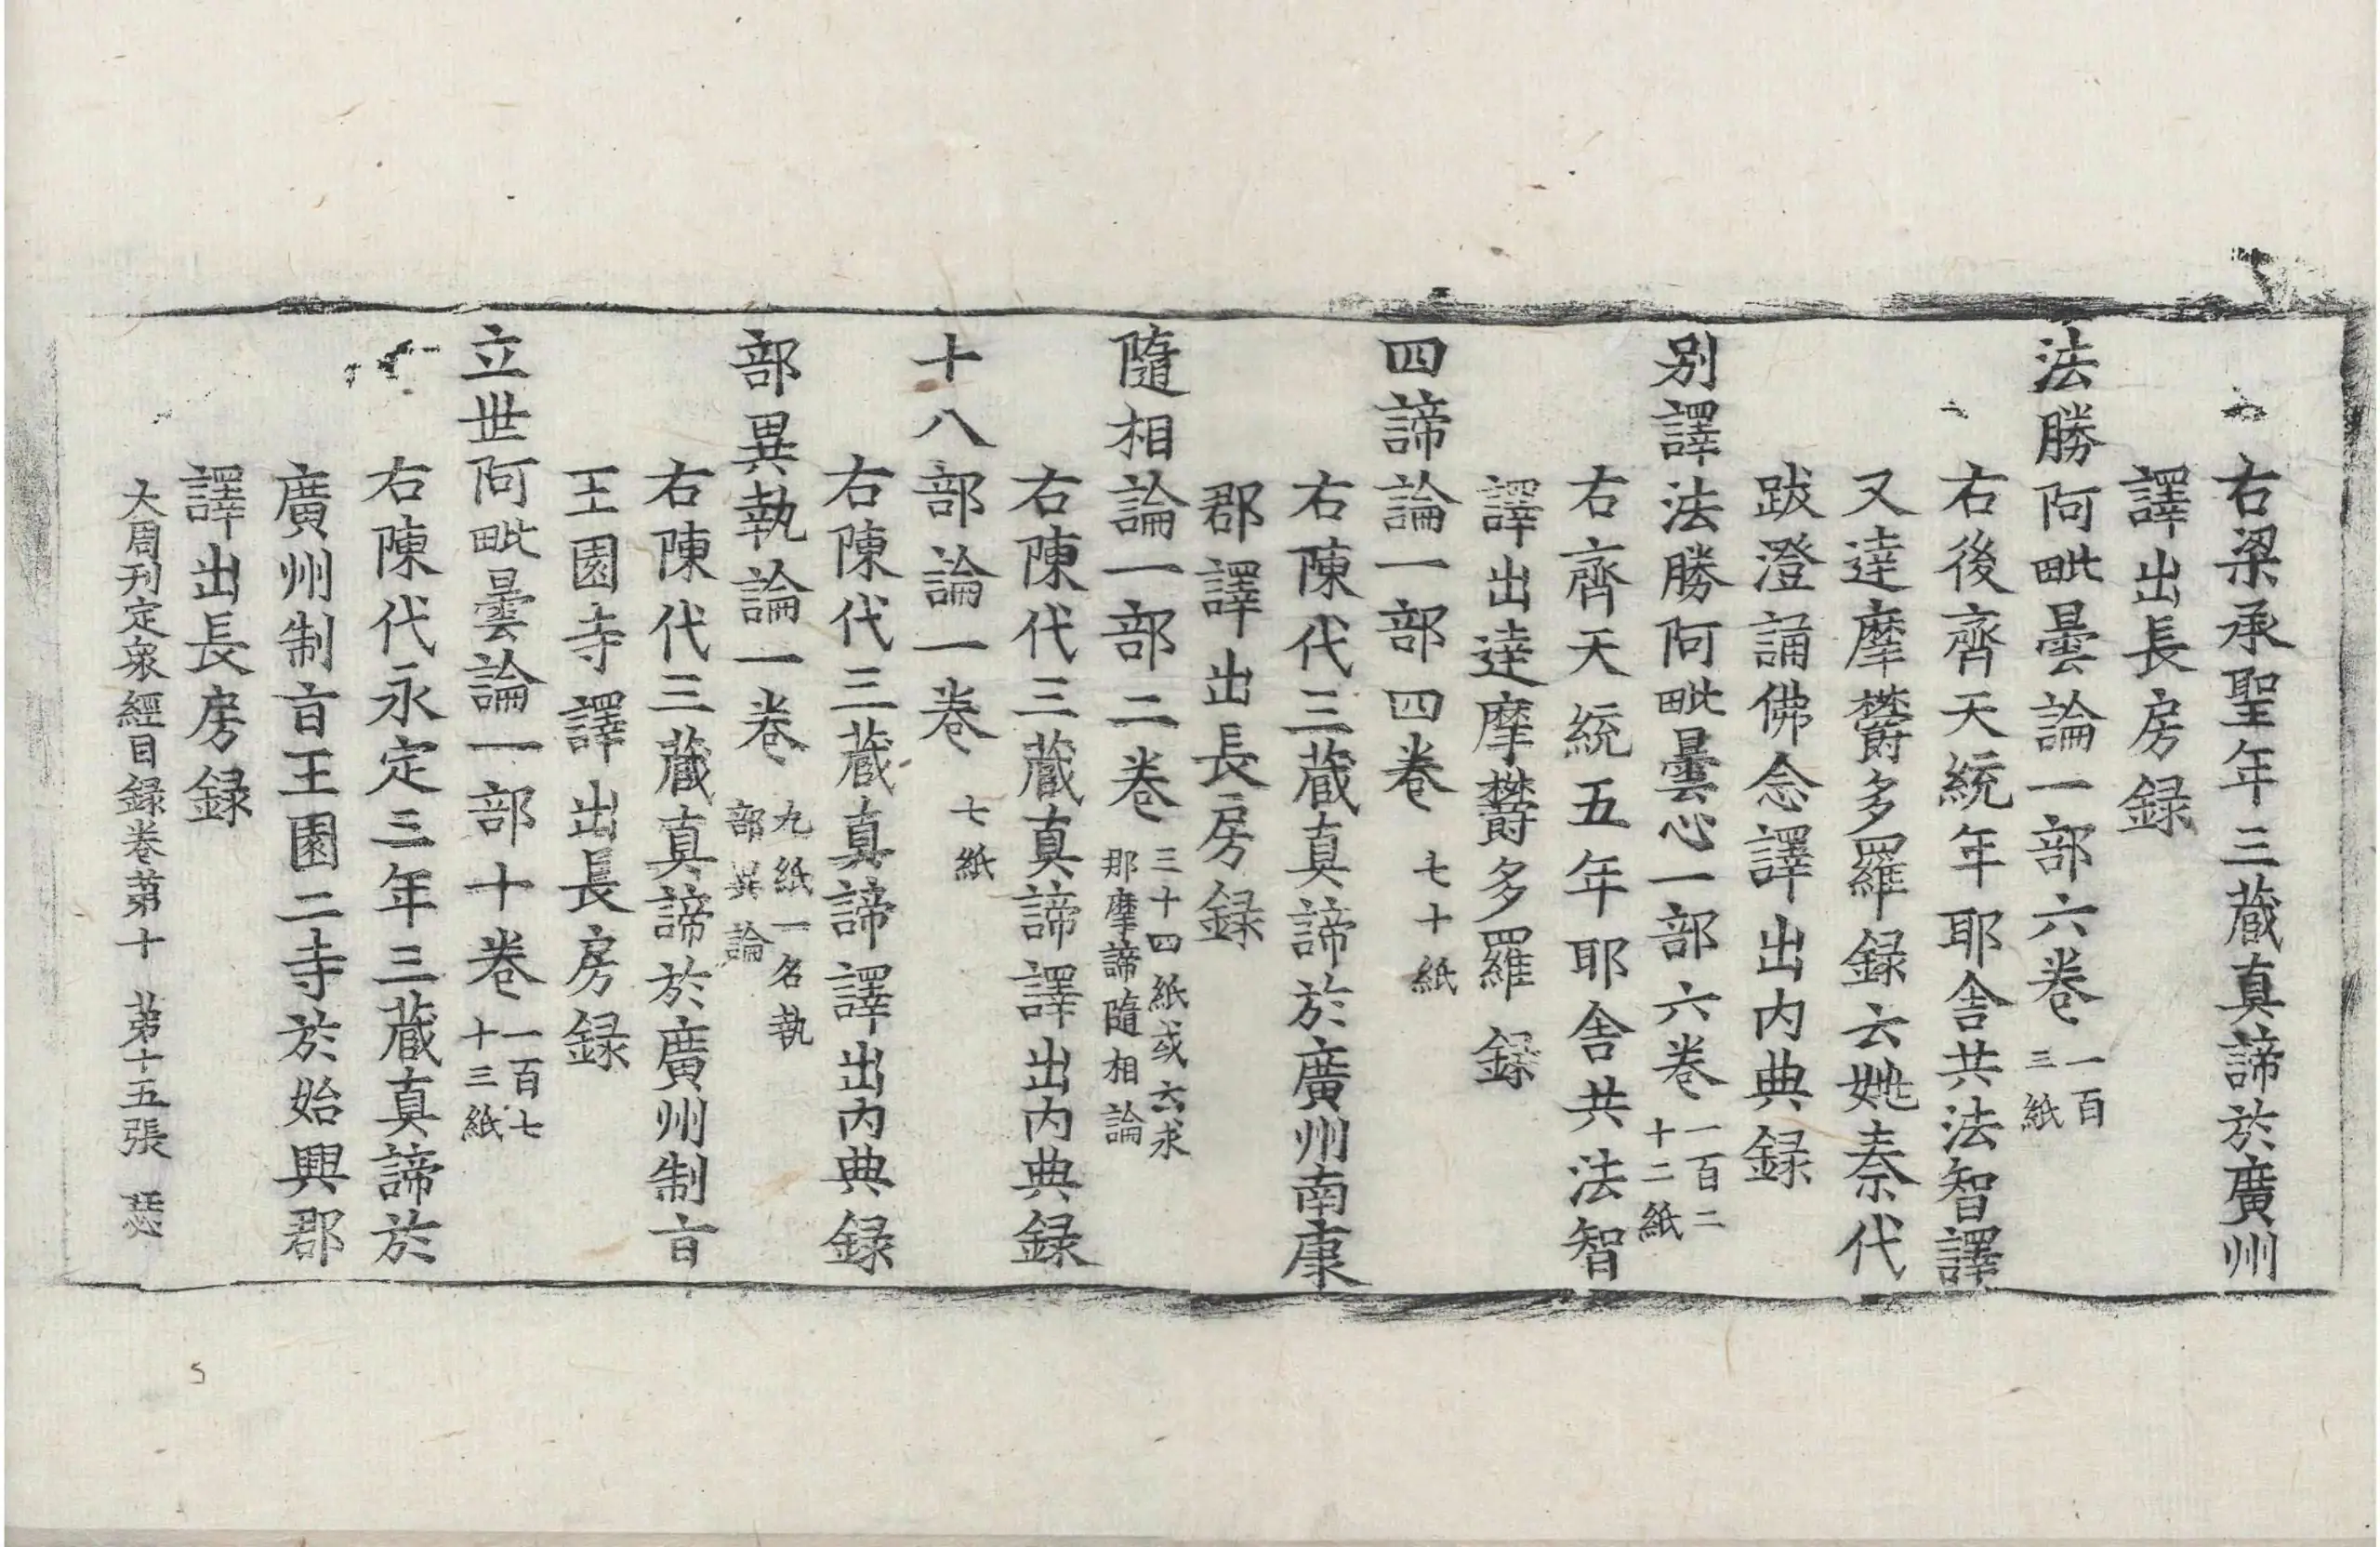 右梁承聖年三藏真諦於廣州
譯出長房録
法勝阿毗曇論一部六卷一百三紙
右後齊天統年耶舍共法智譯
又達摩欝多羅録云姚秦代
跋澄誦佛念譯出内典録
别譯法勝阿毗曇心一部六卷一百二十二紙
右齊天統五年耶舍共法智
譯出達摩欝多羅録
四諦論一部四卷七十紙
右陳代三藏真諦於廣州南康
郡譯出長房録
隨相論一部二卷三十四紙或云求那摩諦隨相論
右陳代三藏真諦譯出内典録
十八部論一卷七紙
右陳代三藏真諦譯出内典録
部異執論一卷九紙一名執部異論
右陳代三藏真諦於廣州制㫖
王園寺譯出長房録
立世阿毗曇論一部十卷一百七十三紙
右陳代永定三年三藏真諦於
廣州制㫖王園二寺於始興郡
譯出長房録
大周刊定衆經目録卷苐十 苐十五張
5